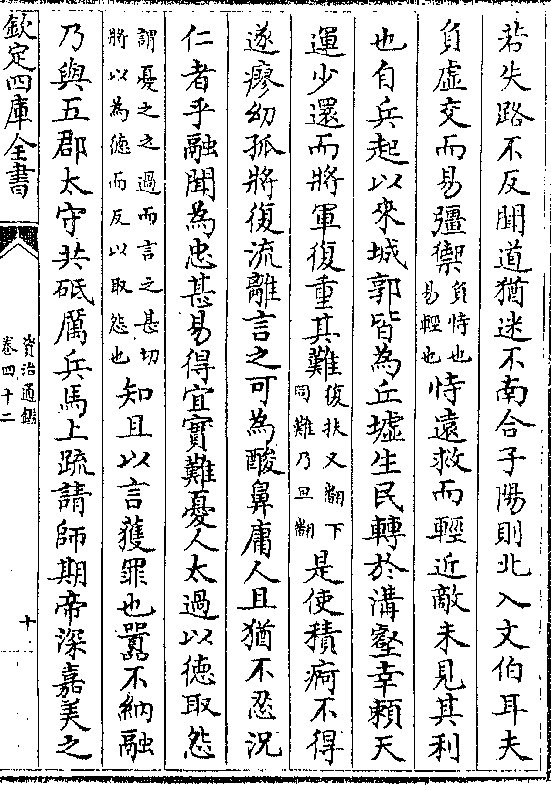 若失路不反聞道猶迷不南合子陽則北入文伯耳夫
負虛交而易彊禦負恃也易輕也恃遠救而輕近敵未見其利
也自兵起以來城郭皆為丘墟生民轉於溝壑幸賴天
運少還而將軍復重其難復扶又翻下同難乃旦翻是使積痾不得
遂瘳幼孤將復流離言之可為酸鼻庸人且猶不忍況
仁者乎融聞為忠甚易得宜實難憂人太過以德取怨
謂憂之之過而言之甚切將以為德而反以取怨也知且以言獲罪也囂不納融
乃與五郡太守共砥厲兵馬上疏請師期帝深嘉美之
欽定四庫全書
資治通鑑
卷四十二
十